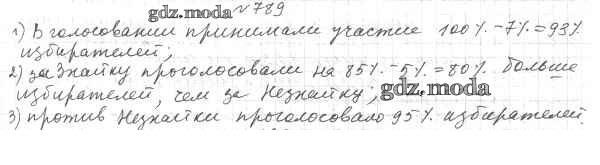 gdz.moda №789
1) В голосовании принимали участие 100%-7%=93%
избирателей;
2) за Знайку проголосовали на 85%-5%=80% больше
избирателей, чем за Незнайку; gdz.moda
3) против Незнайки проголосовало 95% избирателей.